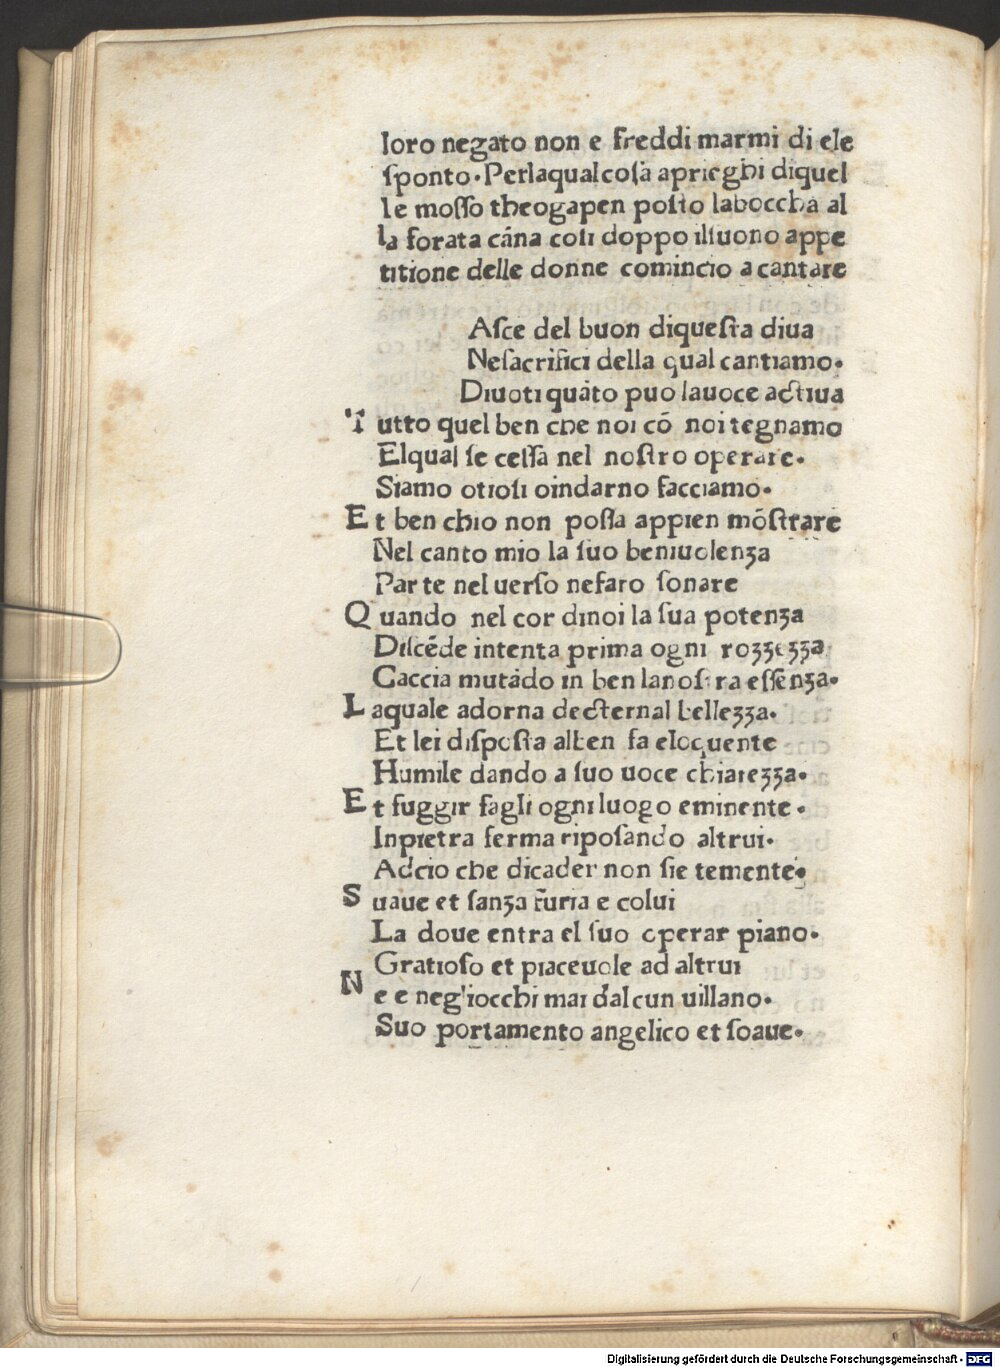 loro negato non e freddi marmi di ele
sponto.Perlaqualcosa aprieghi diquel
le mosso theogapen posto laboccha al
la forata cãna cosi doppo ilsuono appe
titione delle donne comincio a cantare
Asce del buon diquesta diua
Nesacrifici della qual cantiamo.
Diuoti quãto puo lauoce actiua
Tutto quel ben che noi cõ noi tegnamo
Elqual se cessa nel nostro operare.
Siamo otiosi oindarno facciamo.
Et ben chio non possa appien mõstrare
Nel canto mio la suo beniuolenza
Parte nel uerso nefaro sonare
Quando nel cor dinoi la sua potenza
Discẽde intenta prima ogni rozzezza
Caccia mutãdo in ben lanostra essenza.
Laquale adorna decternal bellezza.
Et lei disposta alben fa eloquente
Humile dando a suo uoce chiarezza.
Et fuggir fagli ogni luogo eminente.
Inpietra ferma riposando altrui.
Adcio che dicader non sie temente.
Suaue et sanza furia e colui
La doue entra el suo operar piano.
Gratioso et piaceuole ad altrui
Ne e neg'iocchi mai dalcun uillano.
Suo portamento angelico et soaue.
Digitalisierung gefördert durch die Deutsche Forschungsgemeinschaft - DFG